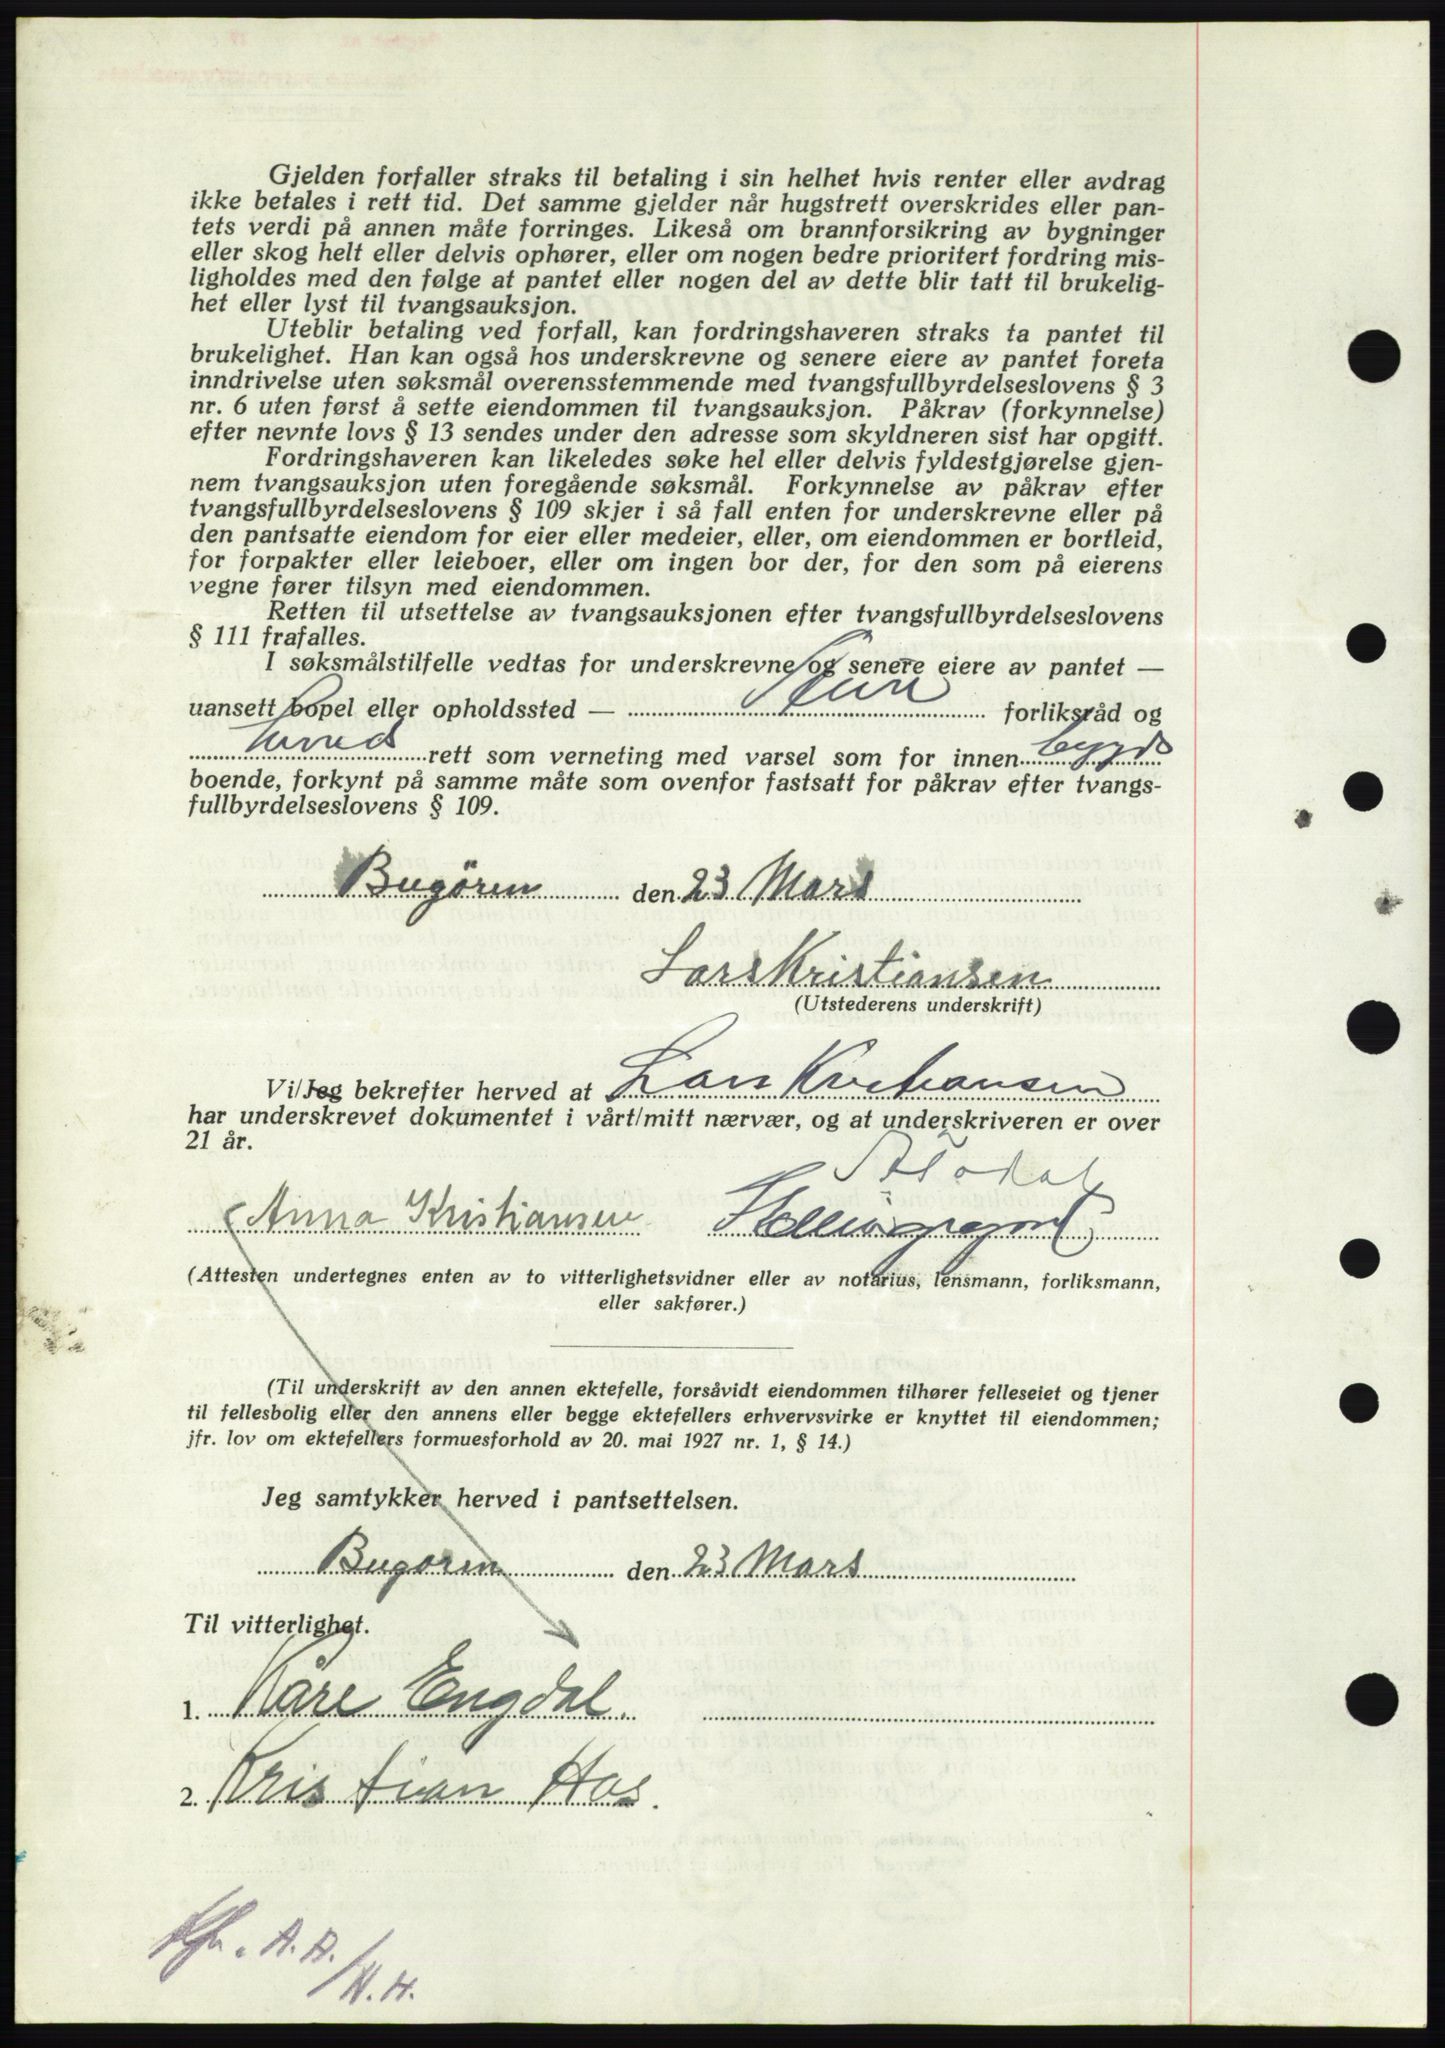 Gjelden forfaller straks til betaling i sin helhet hvis renter eller avdrag
ikke betales i rett tid. Det samme gjelder når hugstrett overskrides eller pan-
tets verdi på annen måte forringes. Likeså om brannforsikring av bygninger
eller skog helt eller delvis ophører, eller om nogen bedre prioritert fordring mis-
ligholdes med den følge at pantet eller nogen del av dette blir tatt til brukelig-
het eller lyst til tvangsauksjon.
Uteblir betaling ved forfall, kan fordringshaveren straks ta pantet til
brukelighet. Han kan også hos underskrevne og senere eiere av pantet foreta
inndrivelse uten søksmål overensstemmende med tvangsfullbyrdelseslovens § 3
nr. 6 uten først å sette eiendommen til tvangsauksjon. Påkrav (forkynnelse)
efter nevnte lovs § 13 sendes under den adresse som skyldneren sist har opgitt.
Fordringshaveren kan likeledes søke hel eller delvis fyldestgjørelse gjen-
nem tvangsauksjon uten foregående søksmål. Forkynnelse av påkrav efter
tvangsfullbyrdelseslovens § 109 skjer i så fall enten for underskrevne eller på
den pantsatte eiendom for eier eller medeier, eller, om eiendommen er bortleid,
for forpakter eller leieboer, eller om ingen bor der, for den som på eierens
vegne fører tilsyn med eiendommen.
Retten til utsettelse av tvangsauksjonen efter tvangsfullbyrdelseslovens
§ 111 frafalles.
I søksmålstilfelle vedtas for underskrevne og senere eiere av pantet —
uansett bopel eller opholdssted — forliksråd og
herreds rett som verneting med varsel som for innen bygds
boende, forkynt på samme måte som ovenfor fastsatt for påkrav efter tvangs-
fullbyrdelseslovens § 109.
Bugören den 23 Mars
Lars Kristiansen
(Utstederens underskrift)
Vi/Jeg bekrefter herved at Lars Kristiansen
har underskrevet dokumentet i vårt/mitt nærvær, og at underskriveren er over
21 år.
Anna Kristiansen
(Attesten undertegnes enten av to vitterlighetsvidner eller av notarius, lensmann, forliksmann,
eller sakfører.)
(Til underskrift av den annen ektefelle, forsåvidt eiendommen tilhører felleseiet og tjener
til fellesbolig eller den annens eller begge ektefellers erhvervsvirke er knyttet til eiendommen;
jfr. lov om ektefellers formuesforhold av 20. mai 1927 nr. 1, § 14.)
Jeg samtykker herved i pantsettelsen.
Bugoren den 23 Mars
Til vitterlighet.
1. Kåre Engdal.
2. Kristian Hos.
A. A.
/H. H.